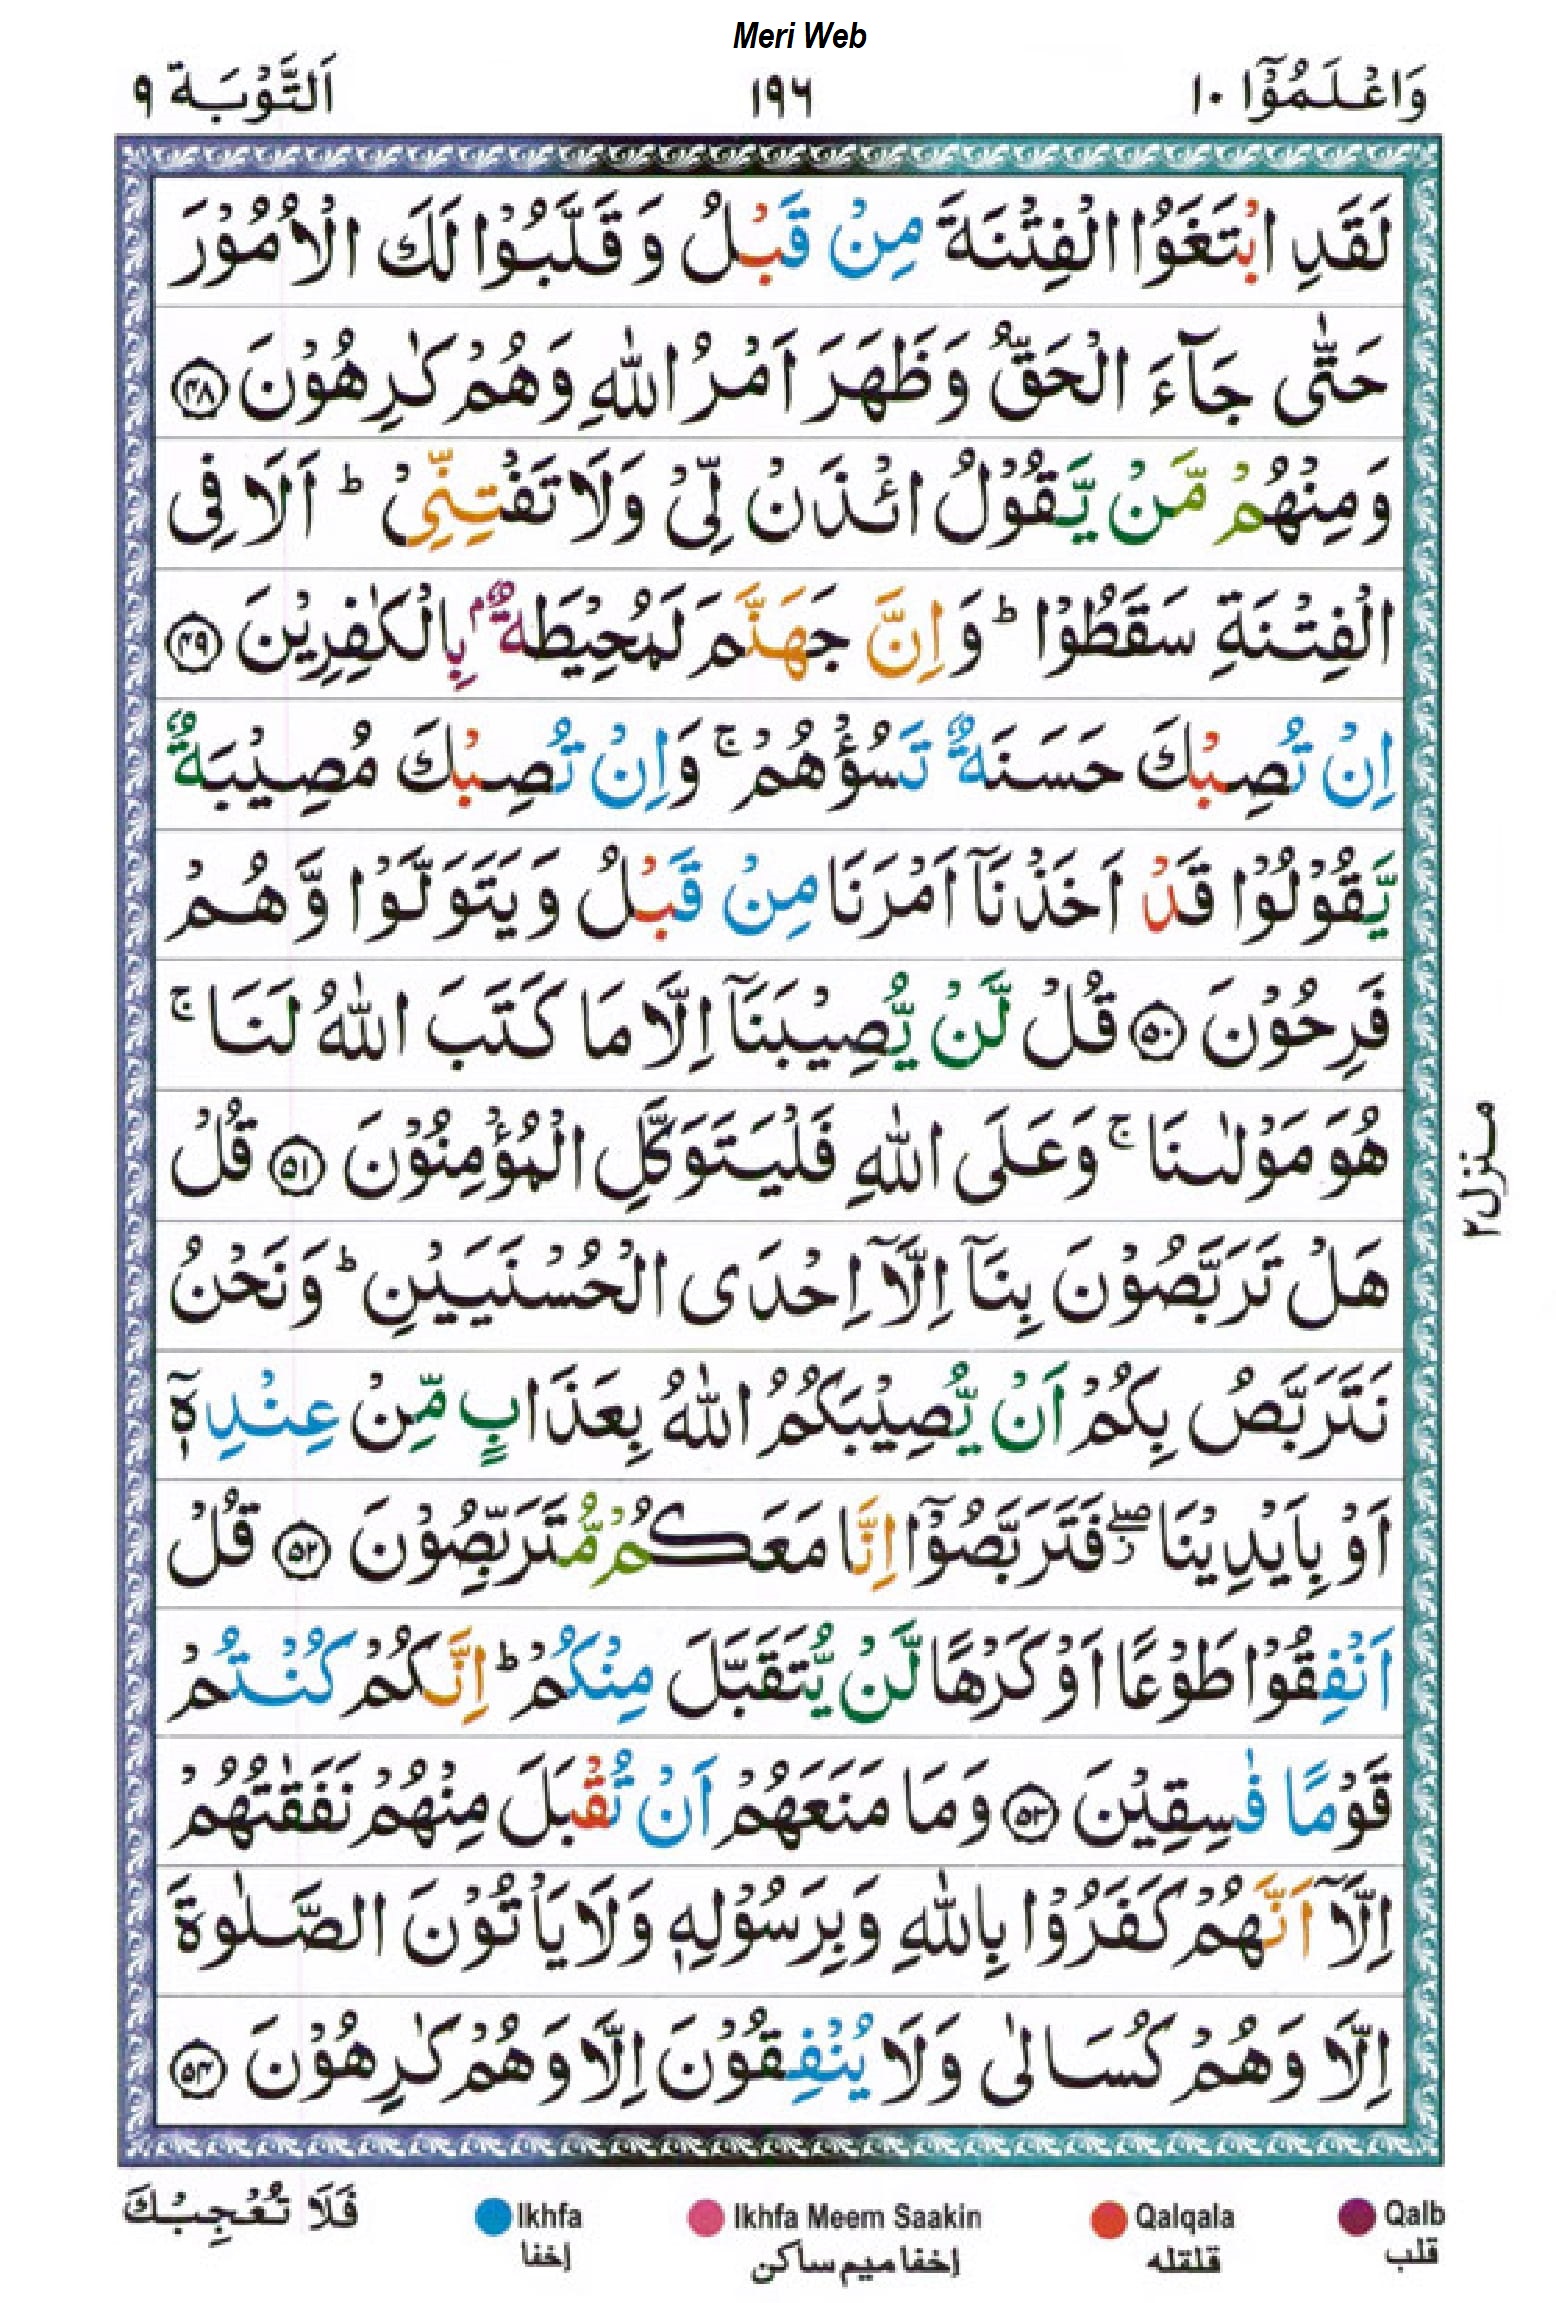 Meri Web
وَاعْلَمُوْٓا ١٠ ١٩٦ اَلتَّوْبَة ٩
لَقَدِ ابْتَغَوُا الْفِتْنَةَ مِنْ قَبْلُ وَ قَلَّبُوْا لَكَ الْاُمُوْرَ
حَتّٰى جَآءَ الْحَقُّ وَظَهَرَ اَمْرُ اللّٰهِ وَهُمْ كٰرِهُوْنَ ۴۸
وَمِنْهُمْ مَّنْ يَّقُوْلُ ائْذَنْ لِّىْ وَلَا تَفْتِنِّىْ ؕ اَلَا فِى
الْفِتْنَةِ سَقَطُوْا ؕ وَ اِنَّ جَهَنَّمَ لَمُحِيْطَةٌۢ بِالْكٰفِرِيْنَ ۴۹
اِنْ تُصِبْكَ حَسَنَةٌ تَسُؤْهُمْ ۚ وَاِنْ تُصِبْكَ مُصِيْبَةٌ
يَّقُوْلُوْا قَدْ اَخَذْنَاۤ اَمْرَنَا مِنْ قَبْلُ وَيَتَوَلَّوْا وَّهُمْ
فَرِحُوْنَ ۵۰ قُلْ لَّنْ يُّصِيْبَنَاۤ اِلَّا مَا كَتَبَ اللّٰهُ لَنَا ۚ
هُوَ مَوْلٰىنَا ۚ وَعَلَى اللّٰهِ فَلْيَتَوَكَّلِ الْمُؤْمِنُوْنَ ۵۱ قُلْ
هَلْ تَرَبَّصُوْنَ بِنَاۤ اِلَّاۤ اِحْدَى الْحُسْنَيَيْنِ ؕ وَنَحْنُ
نَتَرَبَّصُ بِكُمْ اَنْ يُّصِيْبَكُمُ اللّٰهُ بِعَذَابٍ مِّنْ عِنْدِهٖۤ
اَوْ بِاَيْدِيْنَا ۖ فَتَرَبَّصُوْۤا اِنَّا مَعَكُمْ مُّتَرَبِّصُوْنَ ۵۲ قُلْ
اَنْفِقُوْا طَوْعًا اَوْ كَرْهًا لَّنْ يُّتَقَبَّلَ مِنْكُمْ ؕ اِنَّكُمْ كُنْتُمْ
قَوْمًا فٰسِقِيْنَ ۵۳ وَمَا مَنَعَهُمْ اَنْ تُقْبَلَ مِنْهُمْ نَفَقٰتُهُمْ
اِلَّاۤ اَنَّهُمْ كَفَرُوْا بِاللّٰهِ وَبِرَسُوْلِهٖ وَلَا يَاْتُوْنَ الصَّلٰوةَ
اِلَّا وَهُمْ كُسَالٰى وَلَا يُنْفِقُوْنَ اِلَّا وَهُمْ كٰرِهُوْنَ ۵۴
منزل ۲
فَلَا تُعْجِبْكَ
Ikhfa Ikhfa Meem Saakin Qalqala Qalb
إخفا إخفا ميم ساكن قلقله قلب